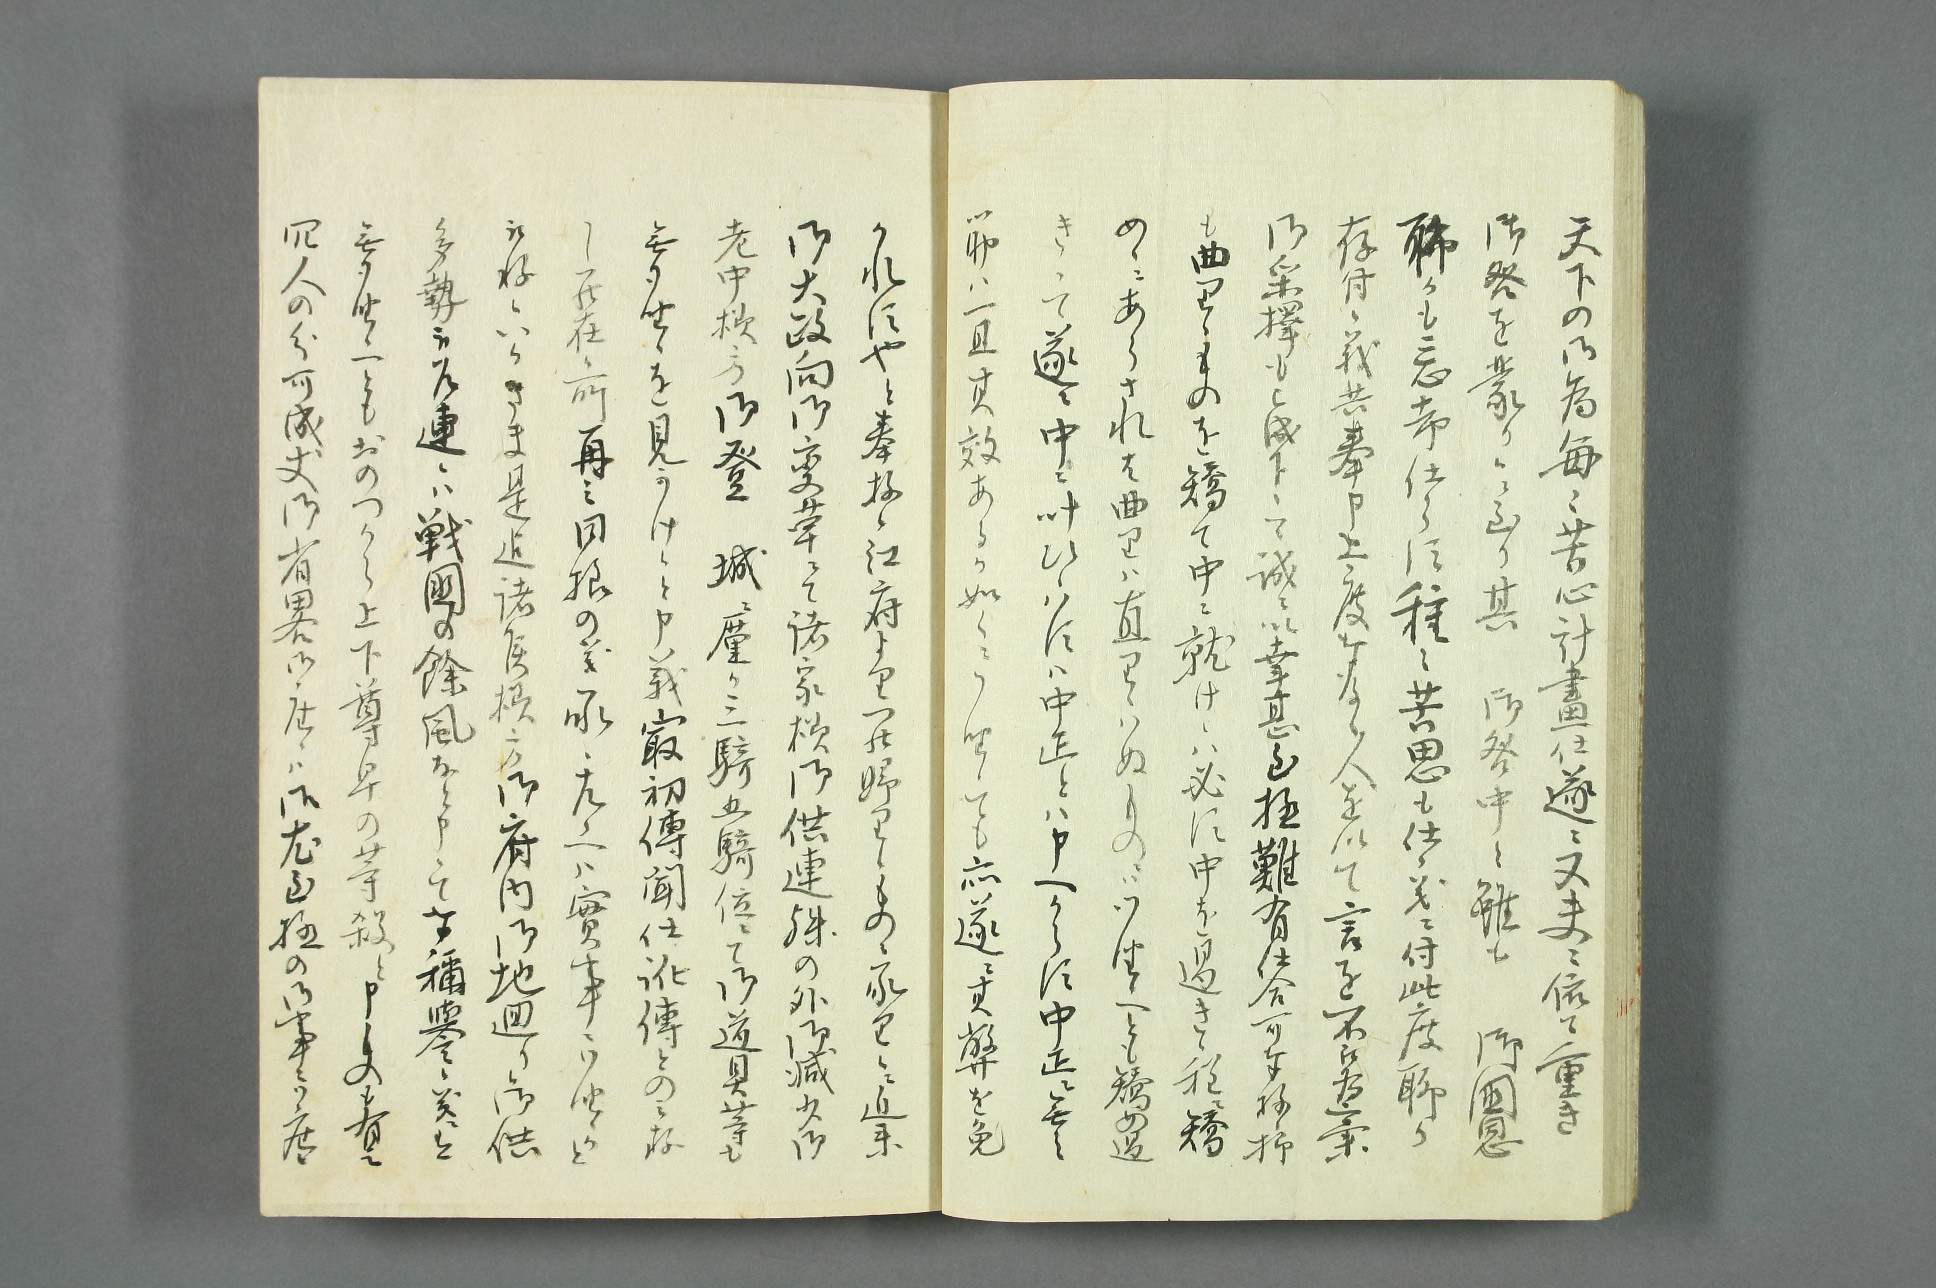 天下の御為毎ニ苦心計画仕遂ニ又夫ニ依て重き
御咎を蒙り候より其　御咎中と雖も　御国恩
聊も忘却仕らす種々苦思も仕候義ニ付此度聊か
存付候義共奉申上度才なく人を以て言を不被為棄
御採択も被成下候て誠ニ以幸甚至極難有仕合可奉存抑
も曲り候ものを矯て中ニ就け候ハ必す中を過き候程ニ矯
めニあらされは曲りハ直り候ハぬものニ御座候へとも矯め過
きって遂ニ中ニ叶ひ候ハすハ中正とハ申へからす中正ニ無之
筋ハ一旦其効あるか如くニ御座候とも亦遂ニ其弊を免
かれすやと奉存候江府より罷帰り候ものゝ承り候ニ近来
御大政向御変革ニて諸家様御供連殊の外御減少御
老中様方御登　城ニ僅か三騎五騎位ニて御道具等も
無御座候を見かけ候と申義最初伝聞仕訛伝とのミ存
し罷在候所再三同様の義承り候へハ実事ニ御座候と
被存候いかさま是迄諸侯様方御府内御地廻り御供
多勢被召連候ハ戦国の余風なと申候て才称誉候義ニは
無御座候へともおのつから上下尊卑の等殺と申ものも有之
冗人の分可成丈御省略御座候ハ御尤至極の御事ニ御座候